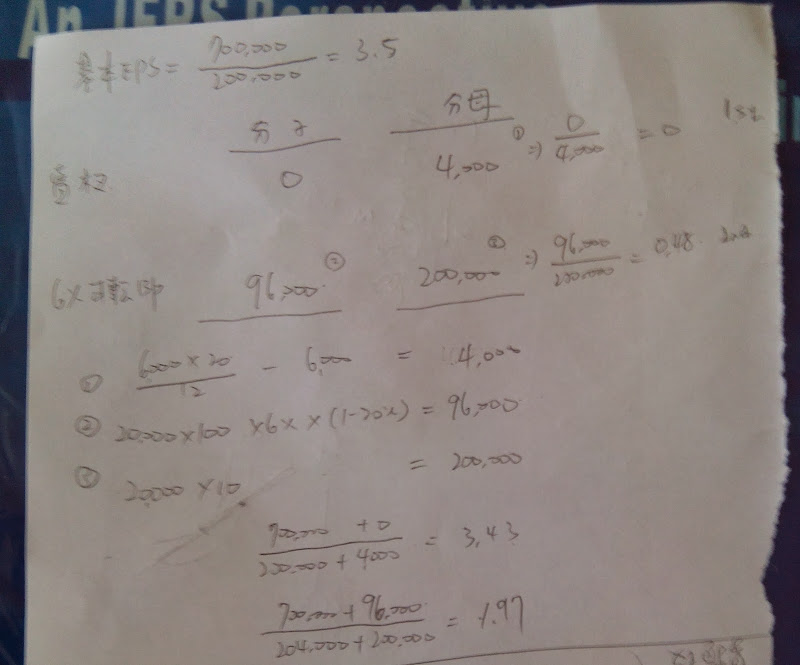 An IFRS Perspective
基本EPS = 700,000 / 200,000 = 3.5
分子 分母
0 4,000 ① ⇒ 0 / 4,000 = 0 1st
6% 可轉 96,000 ② 200,000 ③ ⇒ 96,000 / 200,000 = 0.48 2nd
① 6000 × 20 / 12 - 6,000 = 4,000
② 20,000 × 100 × 6% × (1-20%) = 96,000
③ 20,000 × 10 = 200,000
700,000 + 0 / 200,000 + 4000 = 3.43
700,000 + 96,000 / 204,000 + 200,000 = 1.97